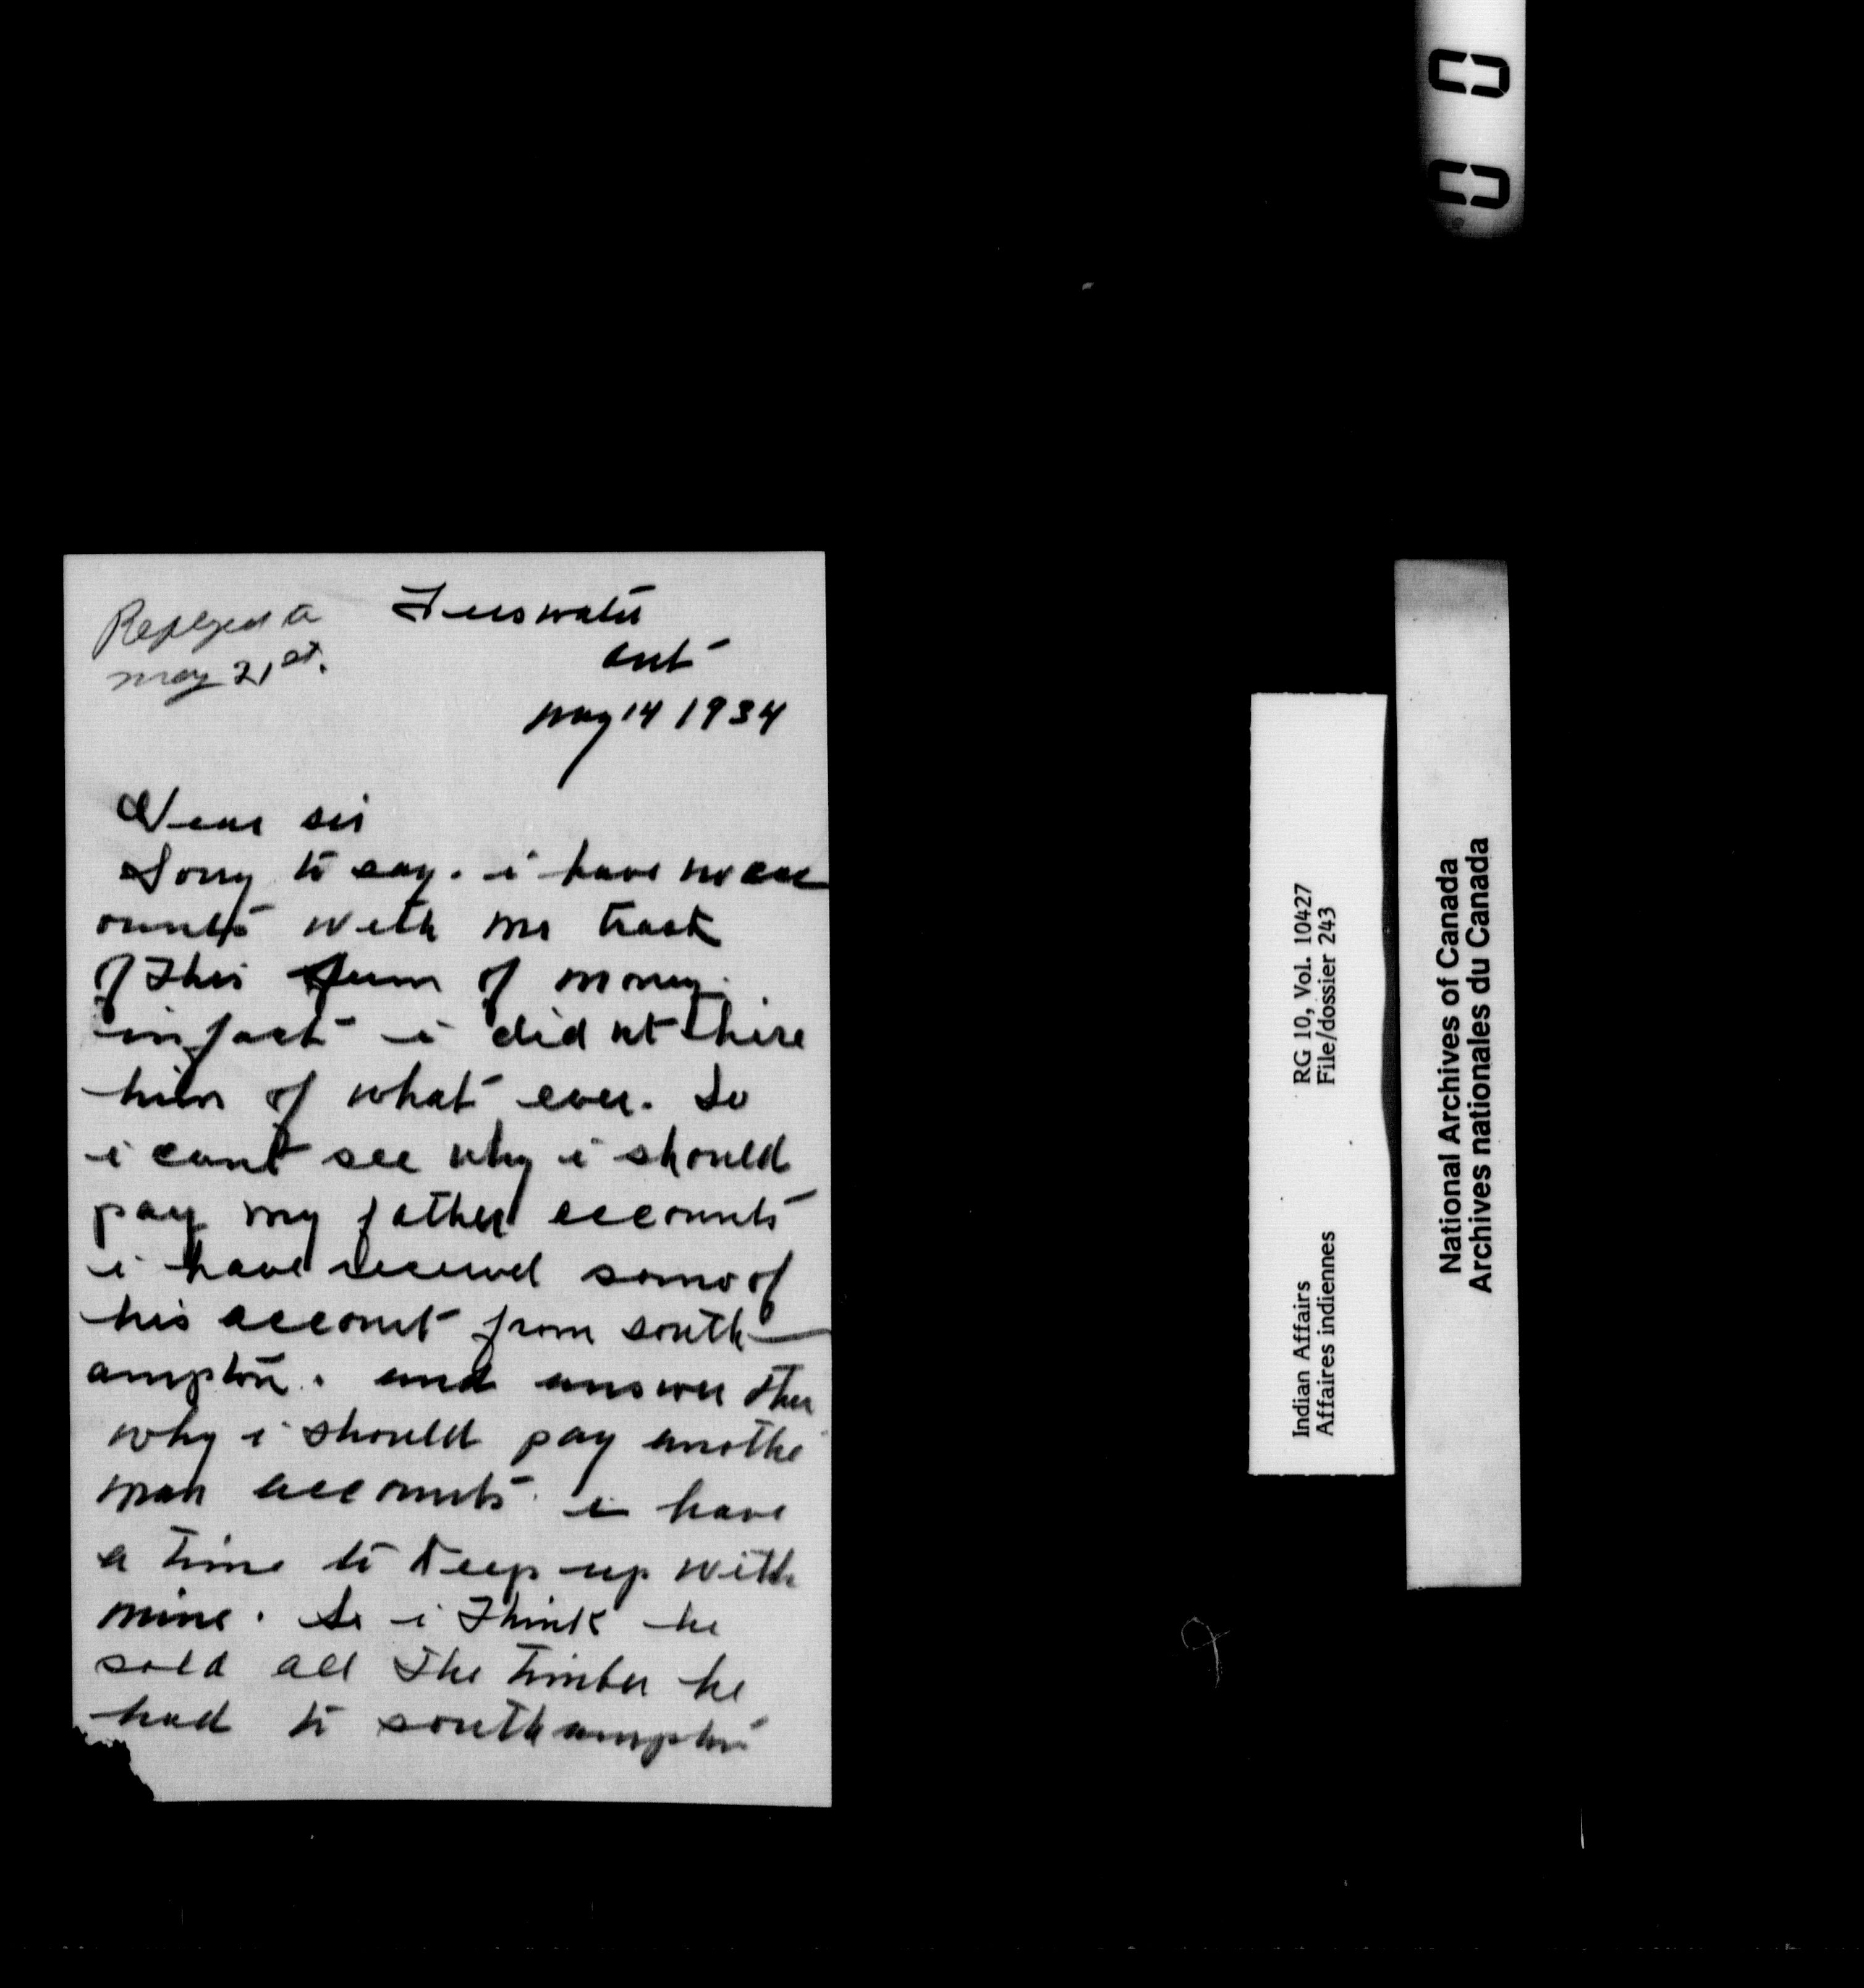 Replyed a
may 21st.
Teeswater
ont
may 14 1934
Dear sir
Sorry to say. i have no acc
ounts with mr trask
of this sum of money.
infact i did nt hire
him of what ever. So
i cant see why i should
pay my father accounts
i have received some of
his account from south
ampton. and answer ther
why i should pay anothe
man accounts i have
a time to keep up with
mine. So i think he
sold all the timber he
had to southampton
RG 10, Vol. 10427
File/dossier 243
Indian Affairs
Affaires indiennes
National Archives of Canada
Archives nationales du Canada